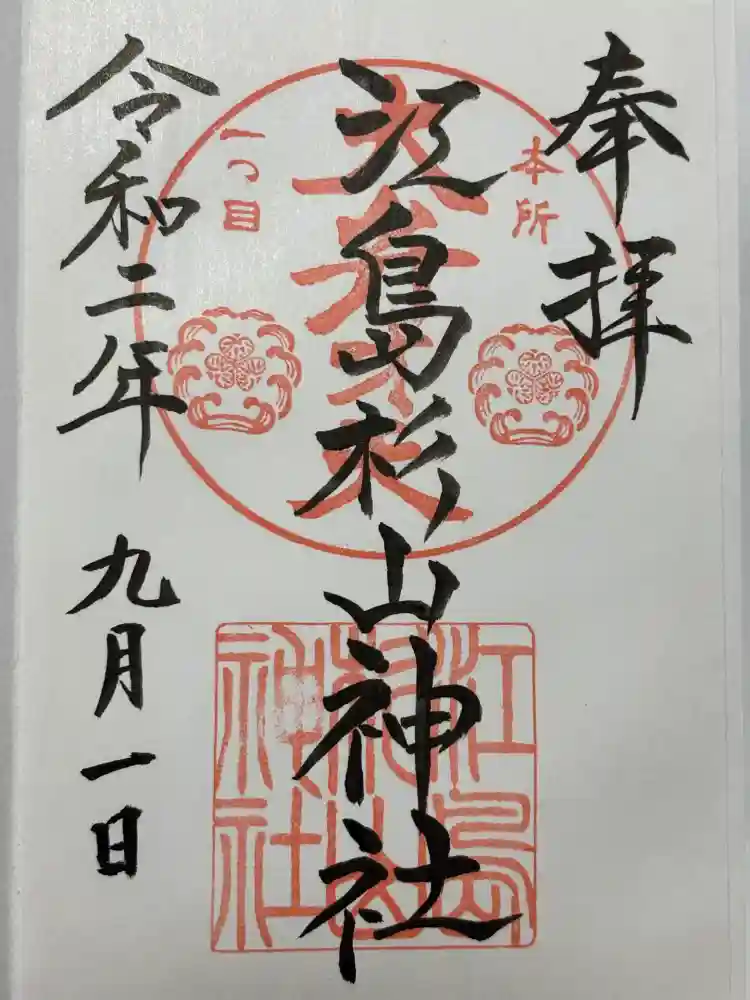 奉拝
本所
江島杉山神社
一つ目
令和二年 九月一日
江島
杉山
神社